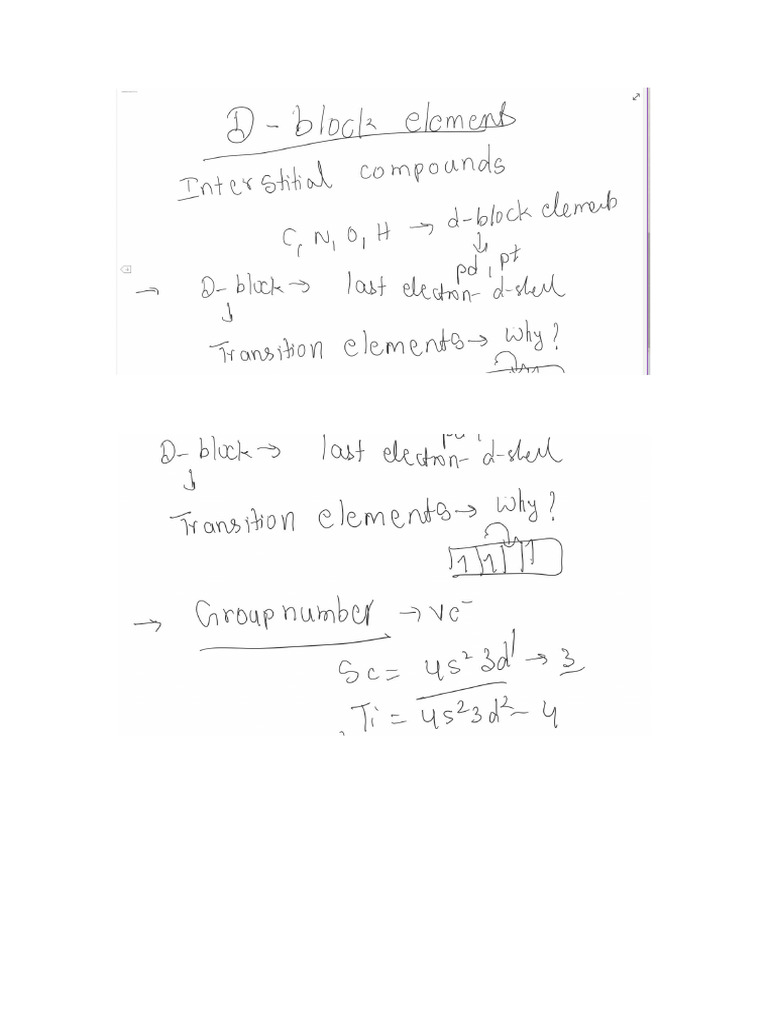 D-block element
Interstitial compounds
C, N, O, H → d-block elements
↓
pd, pt
→ D-block → last electron- d-shell
↓
Transition elements → Why?
D-block → last electron- d-shell
↓
Transition elements → Why?
1 1 1
→ Group number → ve⁻
Sc = 4s² 3d¹ → 3
Ti = 4s² 3d² - 4